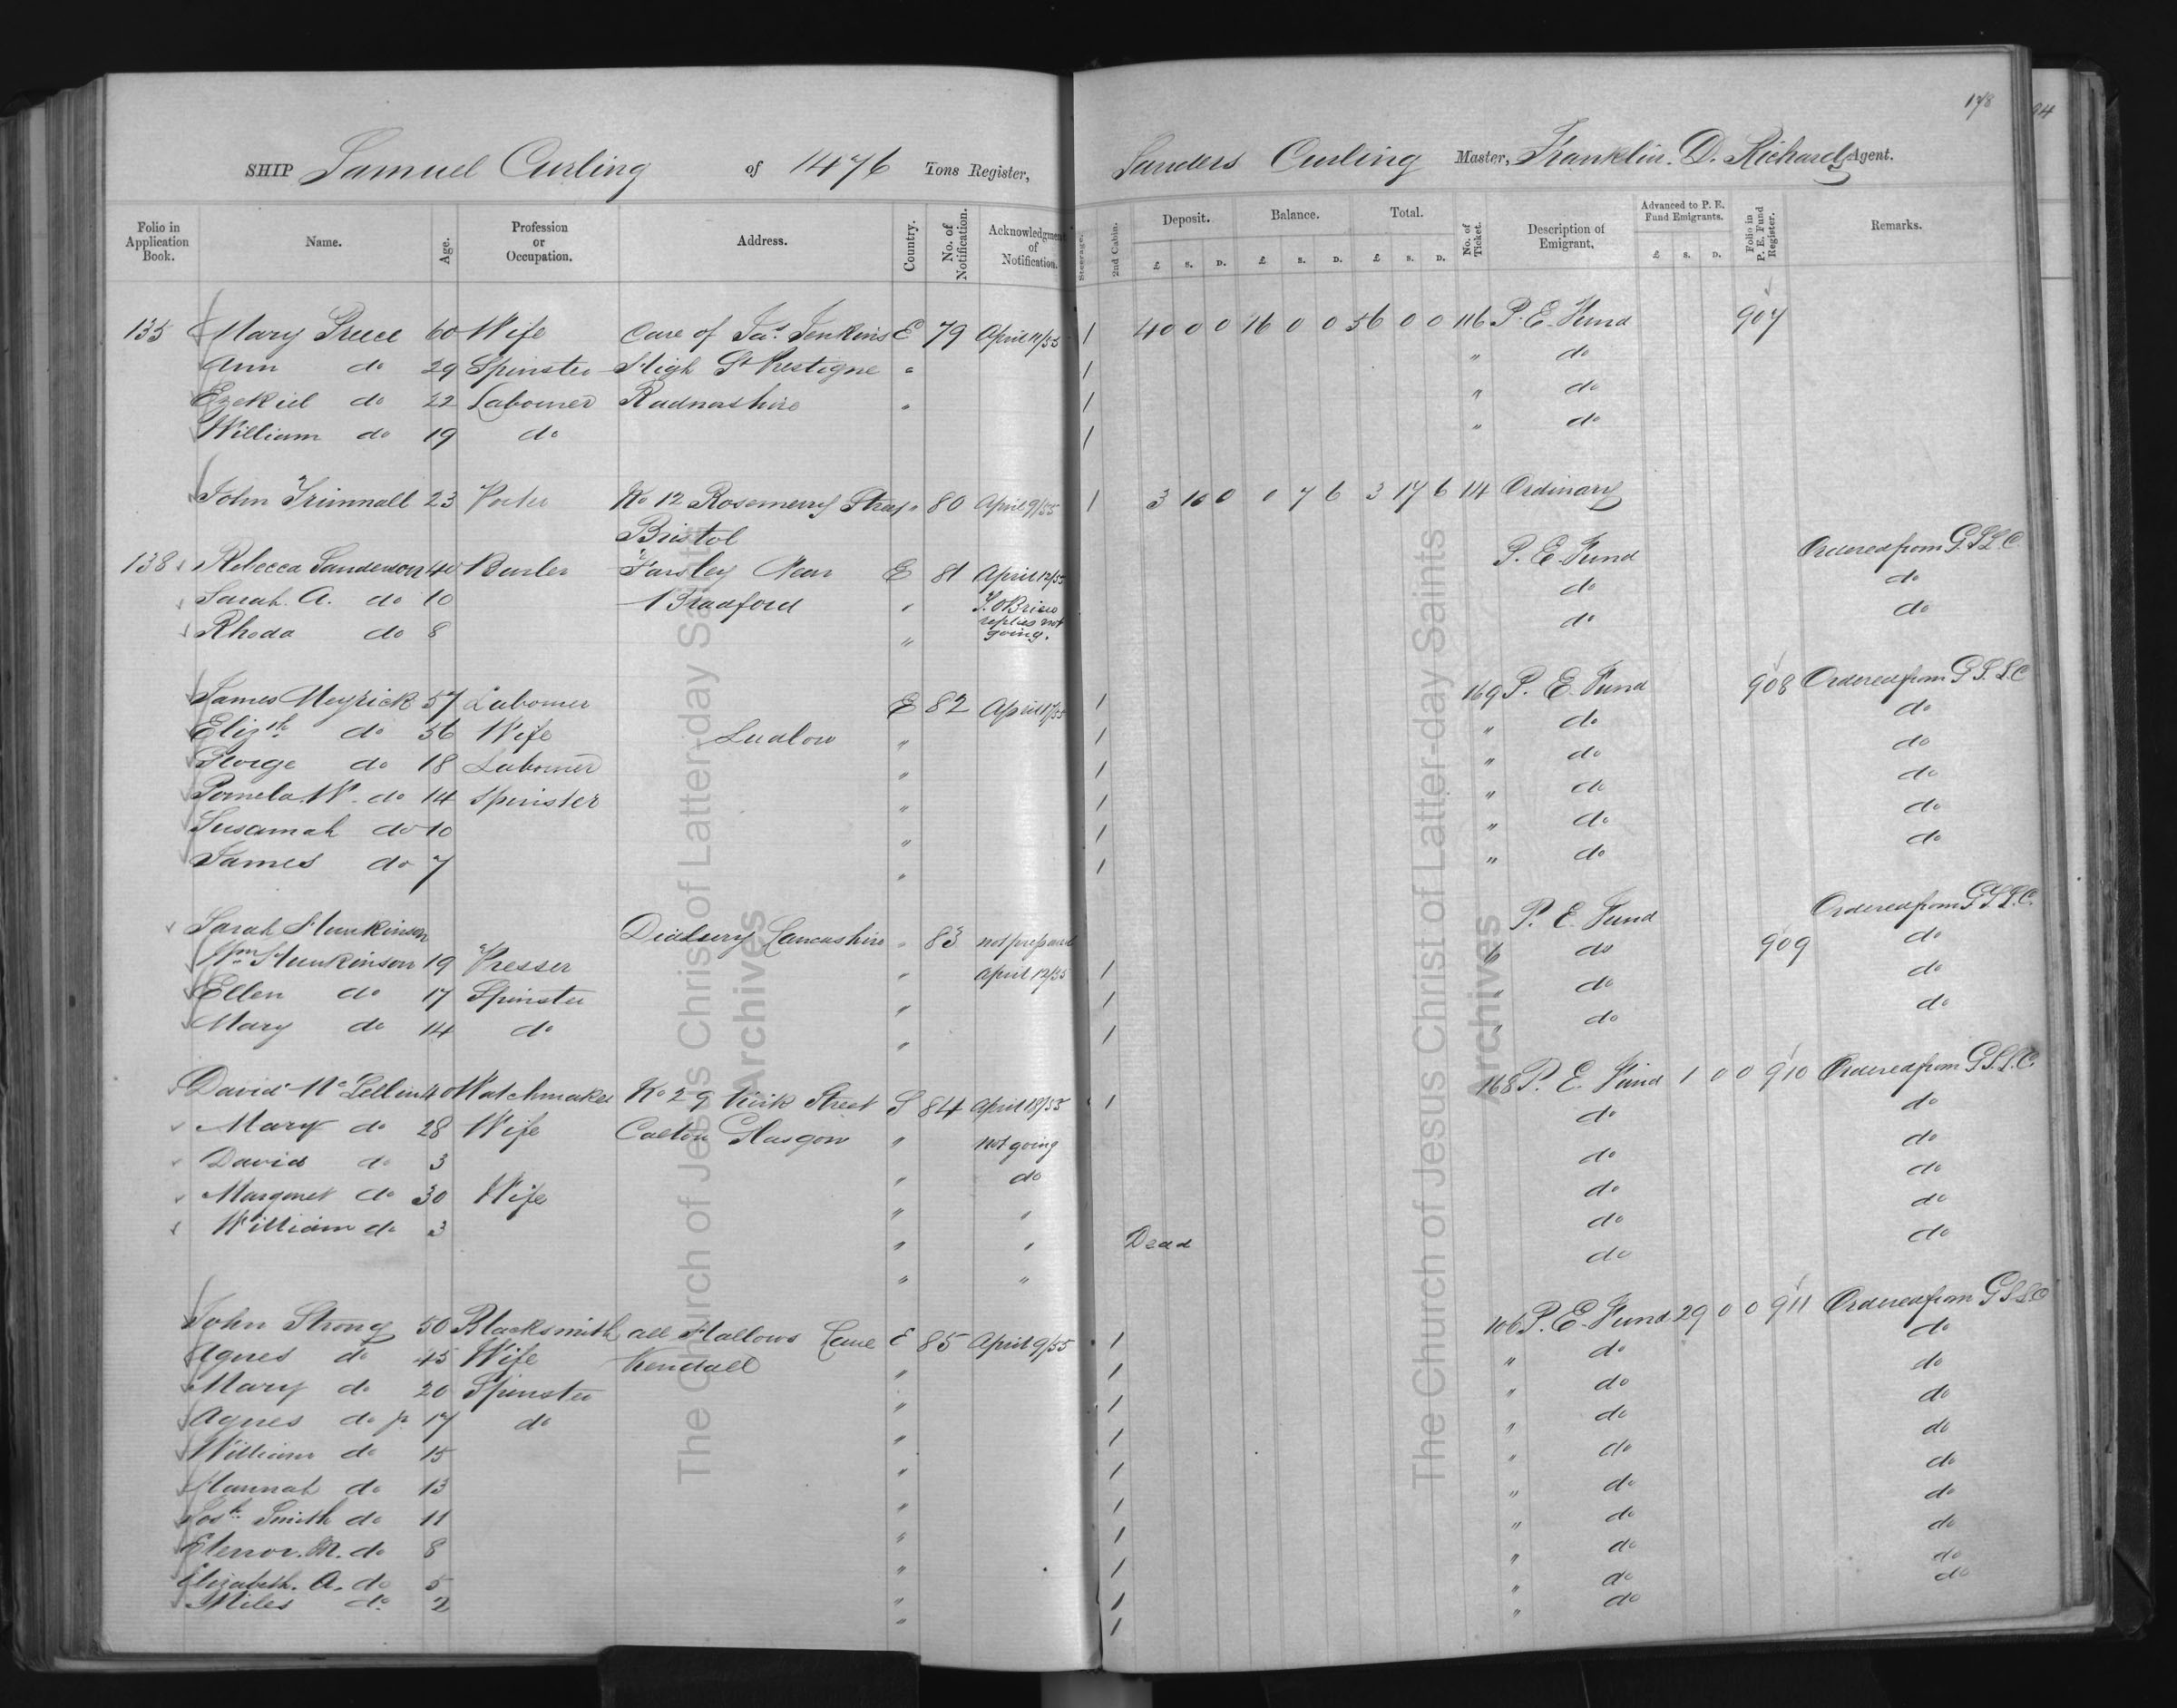 178
SHIP Samuel Curling of 1476 Tons Register, Sanders Curling Master, Franklin. D. Richards Agent.
Folio in Application Book. Name. Age. Profession or Occupation. Address. Country. No. of Notification. Acknowledgment of Notification. Steerage. 2nd Cabin. Deposit. Balance. Total. No. of Ticket. Description of Emigrant. Advanced to P. E. Fund Emigrants. Folio in P. E. Fund Register. Remarks.
£ S. D. £ S. D. £ S. D. £ S. D.
135 Mary Preece 60 Wife Care of Jas. Jenkins E 79 April 11/55 1 40 0 0 16 0 0 56 0 0 116 P. E. Fund 907
Ann do 29 Spinster High St Prestigne " 1 " do
Ezekiel do 22 Labourer Radnorshire " 1 " do
William do 19 do 1 " do
John Trimnall 23 Porter No 12 Rosemerry Street " 80 April 9/55 1 3 10 0 0 7 6 3 17 6 14 Ordinary
Bristol
138 Rebecca Sanderson 40 Burler Farsley Near E 81 April 12/55 P. E. Fund Ordered from G.S.L.C
Sarah. A. do 10 Bradford " T. OBrien do do
Rhoda do 8 " replies not going. do do
James Meyrick 57 Labourer E 82 April 17/55 1 169 P. E. Fund 908 Ordered from G S. L. C
Elizth do 56 Wife Ludlow " 1 " do do
George do 18 Labourer " 1 " do do
Pamela W. do 14 Spinster " 1 " do do
Susannah do 10 " 1 " do do
James do 7 " 1 " do do
Sarah Hunkinson Didsury Lancashire " 83 not prepared P. E. Fund Ordered from G.S.L.C.
Wm Hunkinson 19 Presser " April 12/55 1 6 do 909 do
Ellen do 17 Spinster " 1 " do do
Mary do 14 do " 1 " do do
David McLellin 40 Watchmaker No 29 Kirk Street S 84 April 18/55 1 168 P. E. Fund 1 0 0 910 Ordered from G.S.L.C.
Mary do 28 Wife Calton Glasgow " not going do do
David do 3 " do do do
Margaret do 30 Wife " " do do
William do 3 " " Dead do do
" " do do
John Strong 50 Blacksmith all Hallows Lane E 85 April 9/55 1 106 P. E. Fund 29 0 0 911 Ordered from G S L C
Agnes do 45 Wife Kendall " 1 " do do
Mary do 20 Spinster " 1 " do do
Agnes do jr 17 do " 1 " do do
William do 15 " 1 " do do
Hannah do 13 " 1 " do do
Josh Smith do 11 " 1 " do do
Elenor. M. do 8 " 1 " do do
Elizabeth. A. do 5 " 1 " do do
Miles do 2 " 1 " do do
The Church of Jesus Christ of Latter-day Saints
Archives
The Church of Jesus Christ of Latter-day Saints
Archives